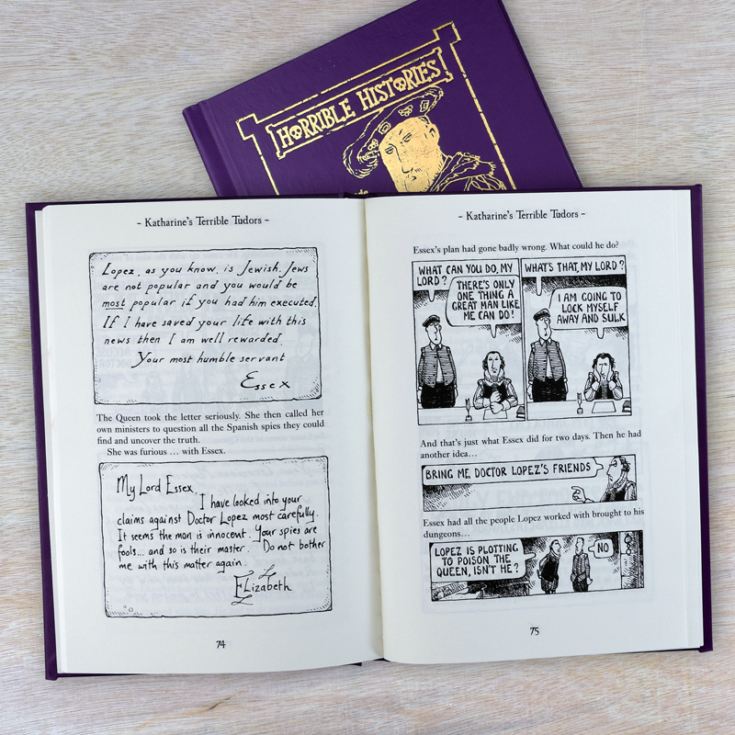 HORRIBLE HISTORIES
- Katharine's Terrible Tudors -
Lopez, as you know, is Jewish. Jews
are not popular and you would be
most popular if you had him executed.
If I have saved your life with this
news then I am well rewarded.
Your most humble servant
Essex
The Queen took the letter seriously. She then called her
own ministers to question all the Spanish spies they could
find and uncover the truth.
She was furious … with Essex.
My Lord Essex,
I have looked into your
claims against Doctor Lopez most carefully.
It seems the man is innocent. Your spies are
fools... and so is their master. Do not bother
me with this matter again.
Elizabeth
74
- Katharine's Terrible Tudors -
Essex's plan had gone badly wrong. What could he do?
WHAT CAN YOU DO, MY
LORD?
THERE'S ONLY
ONE THING A
GREAT MAN LIKE
ME CAN DO!
WHAT'S THAT, MY LORD?
I AM GOING TO
LOCK MYSELF
AWAY AND SULK
And that's just what Essex did for two days. Then he had
another idea…
BRING ME DOCTOR LOPEZ'S FRIENDS
Essex had all the people Lopez worked with brought to his
dungeons…
LOPEZ IS PLOTTING
TO POISON THE
QUEEN, ISN'T HE?
NO
75